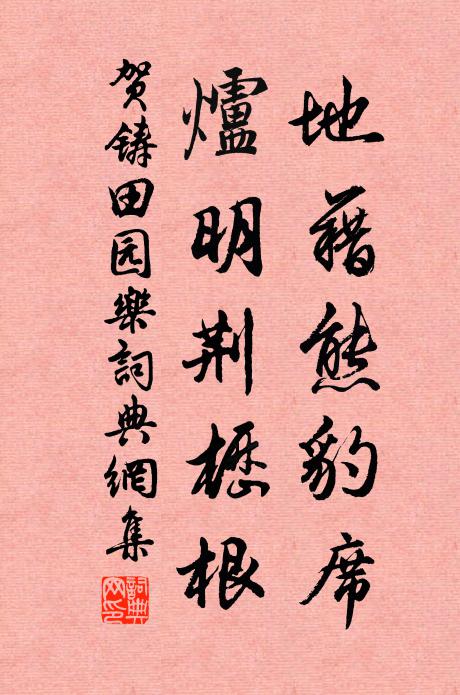 地藉熊豹席
爐明荆櫪根
贺鋳田园樂詞典網集
詞典網印